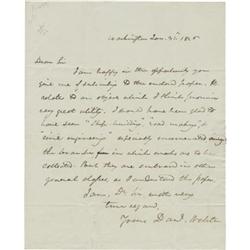 Washington Jan. 31. 1845
Dear Sir
I am happy in the opportunity you
give me of subscribing to the enclosed paper. It
relates to an object which I think promises
very great utility. I should have been glad to
have seen "Ship building," "road making" &
"civil engineering" especially enumerated among
the branches in which models are to be
collected. But they are embraced in other
general phrases, as I understand the paper.
I am, Dr Sir with very
true regard,
Yours Danl. Webster